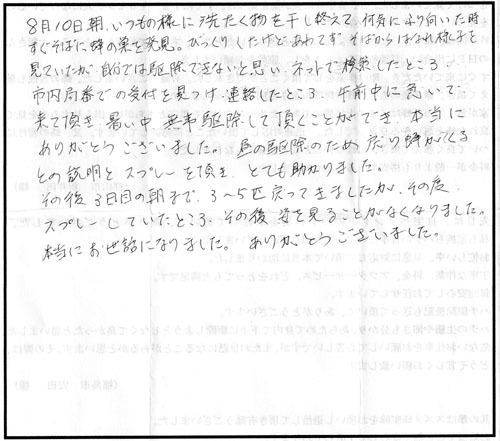 8月10日朝、いつもの様に洗たく物を干し終えて、何気にふり向いた時
すぐそばに蜂の巣を発見。びっくりしたけどあわてず、そばからはなれ様子を
見ていたが、自分では駆除できないと思い、ネットで検索したところ、
市内局番での受付を見つけ、連絡したところ、午前中に急いで
来て頂き、暑い中、無事駆除して頂くことができ、本当に
ありがとうございました。昼の駆除のため、戻り蜂がくる
との説明とスプレーを頂き、とても助かりました。
その後、3日目の朝まで、3～5匹戻ってきましたが、その度、
スプレーしていたところ、その後姿を見ることがなくなりました。
本当にお世話になりました。ありがとうございました。